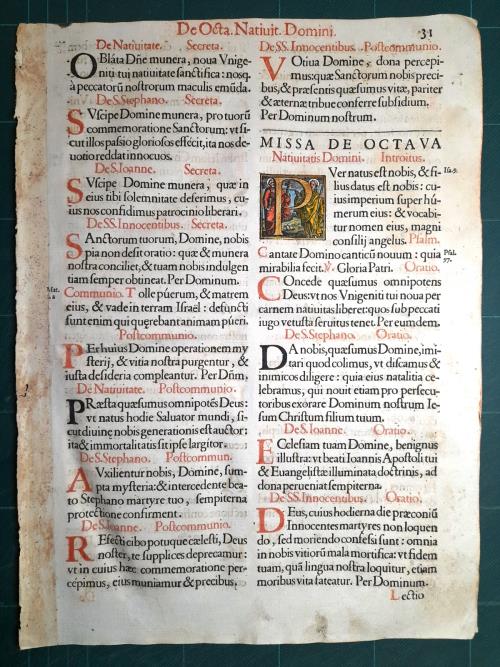 De Octa. Natiuit. Domini.
31
De Natiuitate. Secreta.
OBláta Dñe munera, noua Vnige-
niti tui natiuitate sanctifica: nosq́;
à peccatorũ nostrorum maculis emũda.
De S. Stephano. Secreta.
SVscipe Domine munera, pro tuorũ
commemoratione Sanctorum: vt si-
cut illos passio gloriosos effecit, ita nos de-
uotio reddat innocuos.
De S. Ioanne. Secreta.
SVscipe Domine munera, quæ in
eius tibi solemnitate deferimus, cu-
ius nos confidimus patrocinio liberari.
De SS. Innocentibus. Secreta.
SAnctorum tuorum, Domine, nobis
pia non desit oratio: quæ & munera
nostra conciliet, & tuam nobis indulgen
tiam semper obtineat. Per Dominum.
Mat.
2. a
Communio. Tolle púerum, & matrem
eius, & vade in terram Israël: defuncti
sunt enim qui quęrebant animam púeri.
Postcommunio.
PEr huius Domine operationem my
sterij, & vitia nostra purgentur, &
iusta desideria compleantur. Per Dñm.
De Natiuitate. Postcommunio.
PRæsta quæsumus omnipotẽs Deus:
vt natus hodie Saluator mundi, si-
cut diuinę nobis generationis est auctor:
ita & immortalitatis sit ipse largitor.
De S. Stephano. Postcommun.
AVxilientur nobis, Domine, sum-
pta mysteria: & intercedente bea-
to Stephano martyre tuo, sempiterna
protectione confirment.
De S. Ioanne. Postcommunio.
REfecti cibo potuque cælesti, Deus
noster, te supplices deprecamur:
vt in cuius hæc commemoratione per-
cépimus, eius muniamur & precibus,
De SS. Innocentibus. Postcommunio.
VOtiua Domine, dona percepi-
mus: quæ Sanctorum nobis preci-
bus, & præsentis quæsumus vitæ, pariter
& æternæ tribue conferre subsidium.
Per Dominum nostrum.
MISSA DE OCTAVA
Natiuitatis Domini. Introitus.
PVer natus est nobis, & fi-
Isa. 9.
lius datus est nobis: cu-
ius imperium super hú-
merum eius: & vocabi-
tur nomen eius, magni
consilij angelus. Psalm.
Cantate Domino canticũ nouum: quia
Psal.
97.
mirabilia fecit. V. Gloria Patri. Oratio.
COncede quæsumus omnipotens
Deus: vt nos Vnigeniti tui noua per
carnem natiuitas liberet: quos sub peccati
iugo vetusta seruitus tenet. Per eumdem.
De S. Stephano. Oratio.
DA nobis, quæsumus Domine, imi-
tari quod colimus, vt discamus &
inimicos diligere: quia eius natalitia ce-
lebramus, qui nouit etiam pro persecu-
toribus exorare Dominum nostrum Ie-
sum Christum filium tuum.
De S. Ioanne. Oratio.
ECclesiam tuam Domine, benignus
illustra: vt beati Ioannis Apostoli tui
& Euangelistæ illuminata doctrinis, ad
dona perueniat sempiterna.
De SS. Innocentibus. Oratio.
DEus, cuius hodierna die præconiũ
Innocentes martyres non loquen
do, sed moriendo confessi sunt: omnia
in nobis vitiorũ mala mortifica: vt fidem
tuam, quã lingua nostra loquitur, etiam
moribus vita fateatur. Per Dominum.
Lectio